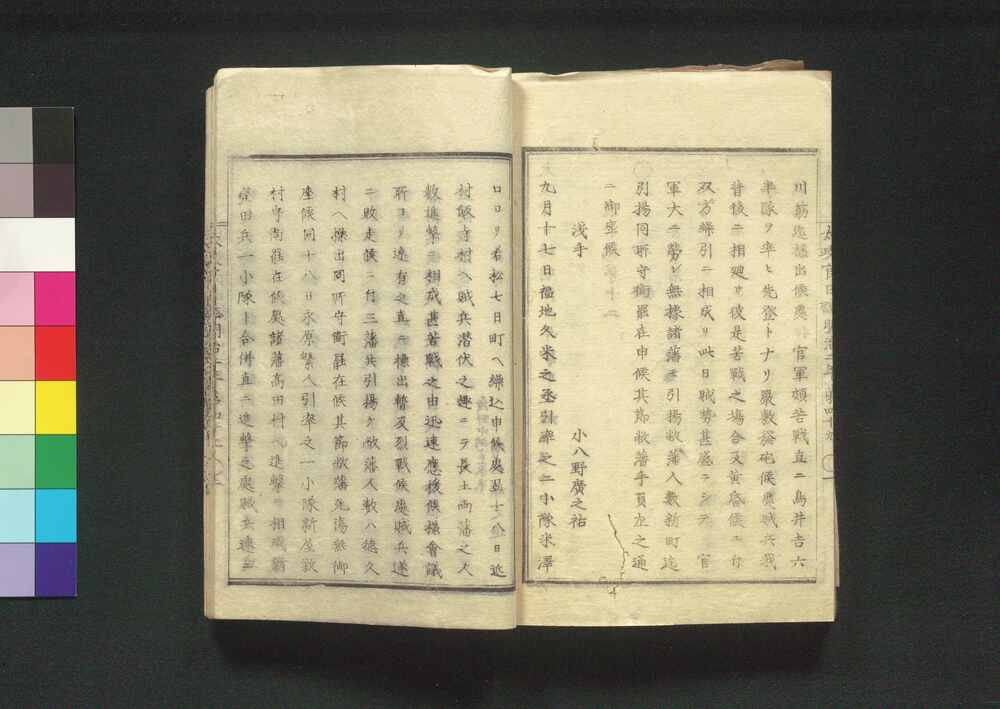 川筋迄操出候處官軍頻苦戰直ニ鳥井吉六
半隊ヲ率ヒ先登トナリ嚴敷發砲候處賊兵我
背後ニ相廻リ彼是苦戰之場合又黄昏儀ニ付
双方繰引ニ相成リ此日賊勢甚盛ニシテ官
軍大ニ勞シ無據諸藩ニ引揚敝藩人數新町迄
引揚同所守衛罷在申候其節敝藩手負左之通
ニ御座候
淺手
小八野廣之祐
九月十七日福地久米之丞引率之二小隊米澤
口ヨリ若松七日町ヘ繰込申候處翌十八日近
村飯寺村ヘ賊兵潜伏之趣ニテ長土両藩之人
數進撃ニ相成甚苦戰之由迅速應援候様會議
所ヨリ達有之直ニ操出暫及烈戰候處賊兵遂
ニ敗走候ニ付三藩共引揚ケ敝藩人數ハ德久
村ヘ操出同所守衛罷在候其節敝藩死傷無御
座候同十八日永原繁人引率之一小隊新屋敷
村守衛罷在候處諸藩高田村ヘ進撃ニ相成
柴田兵一小隊ト合併直ニ進撃之處賊兵速ニ